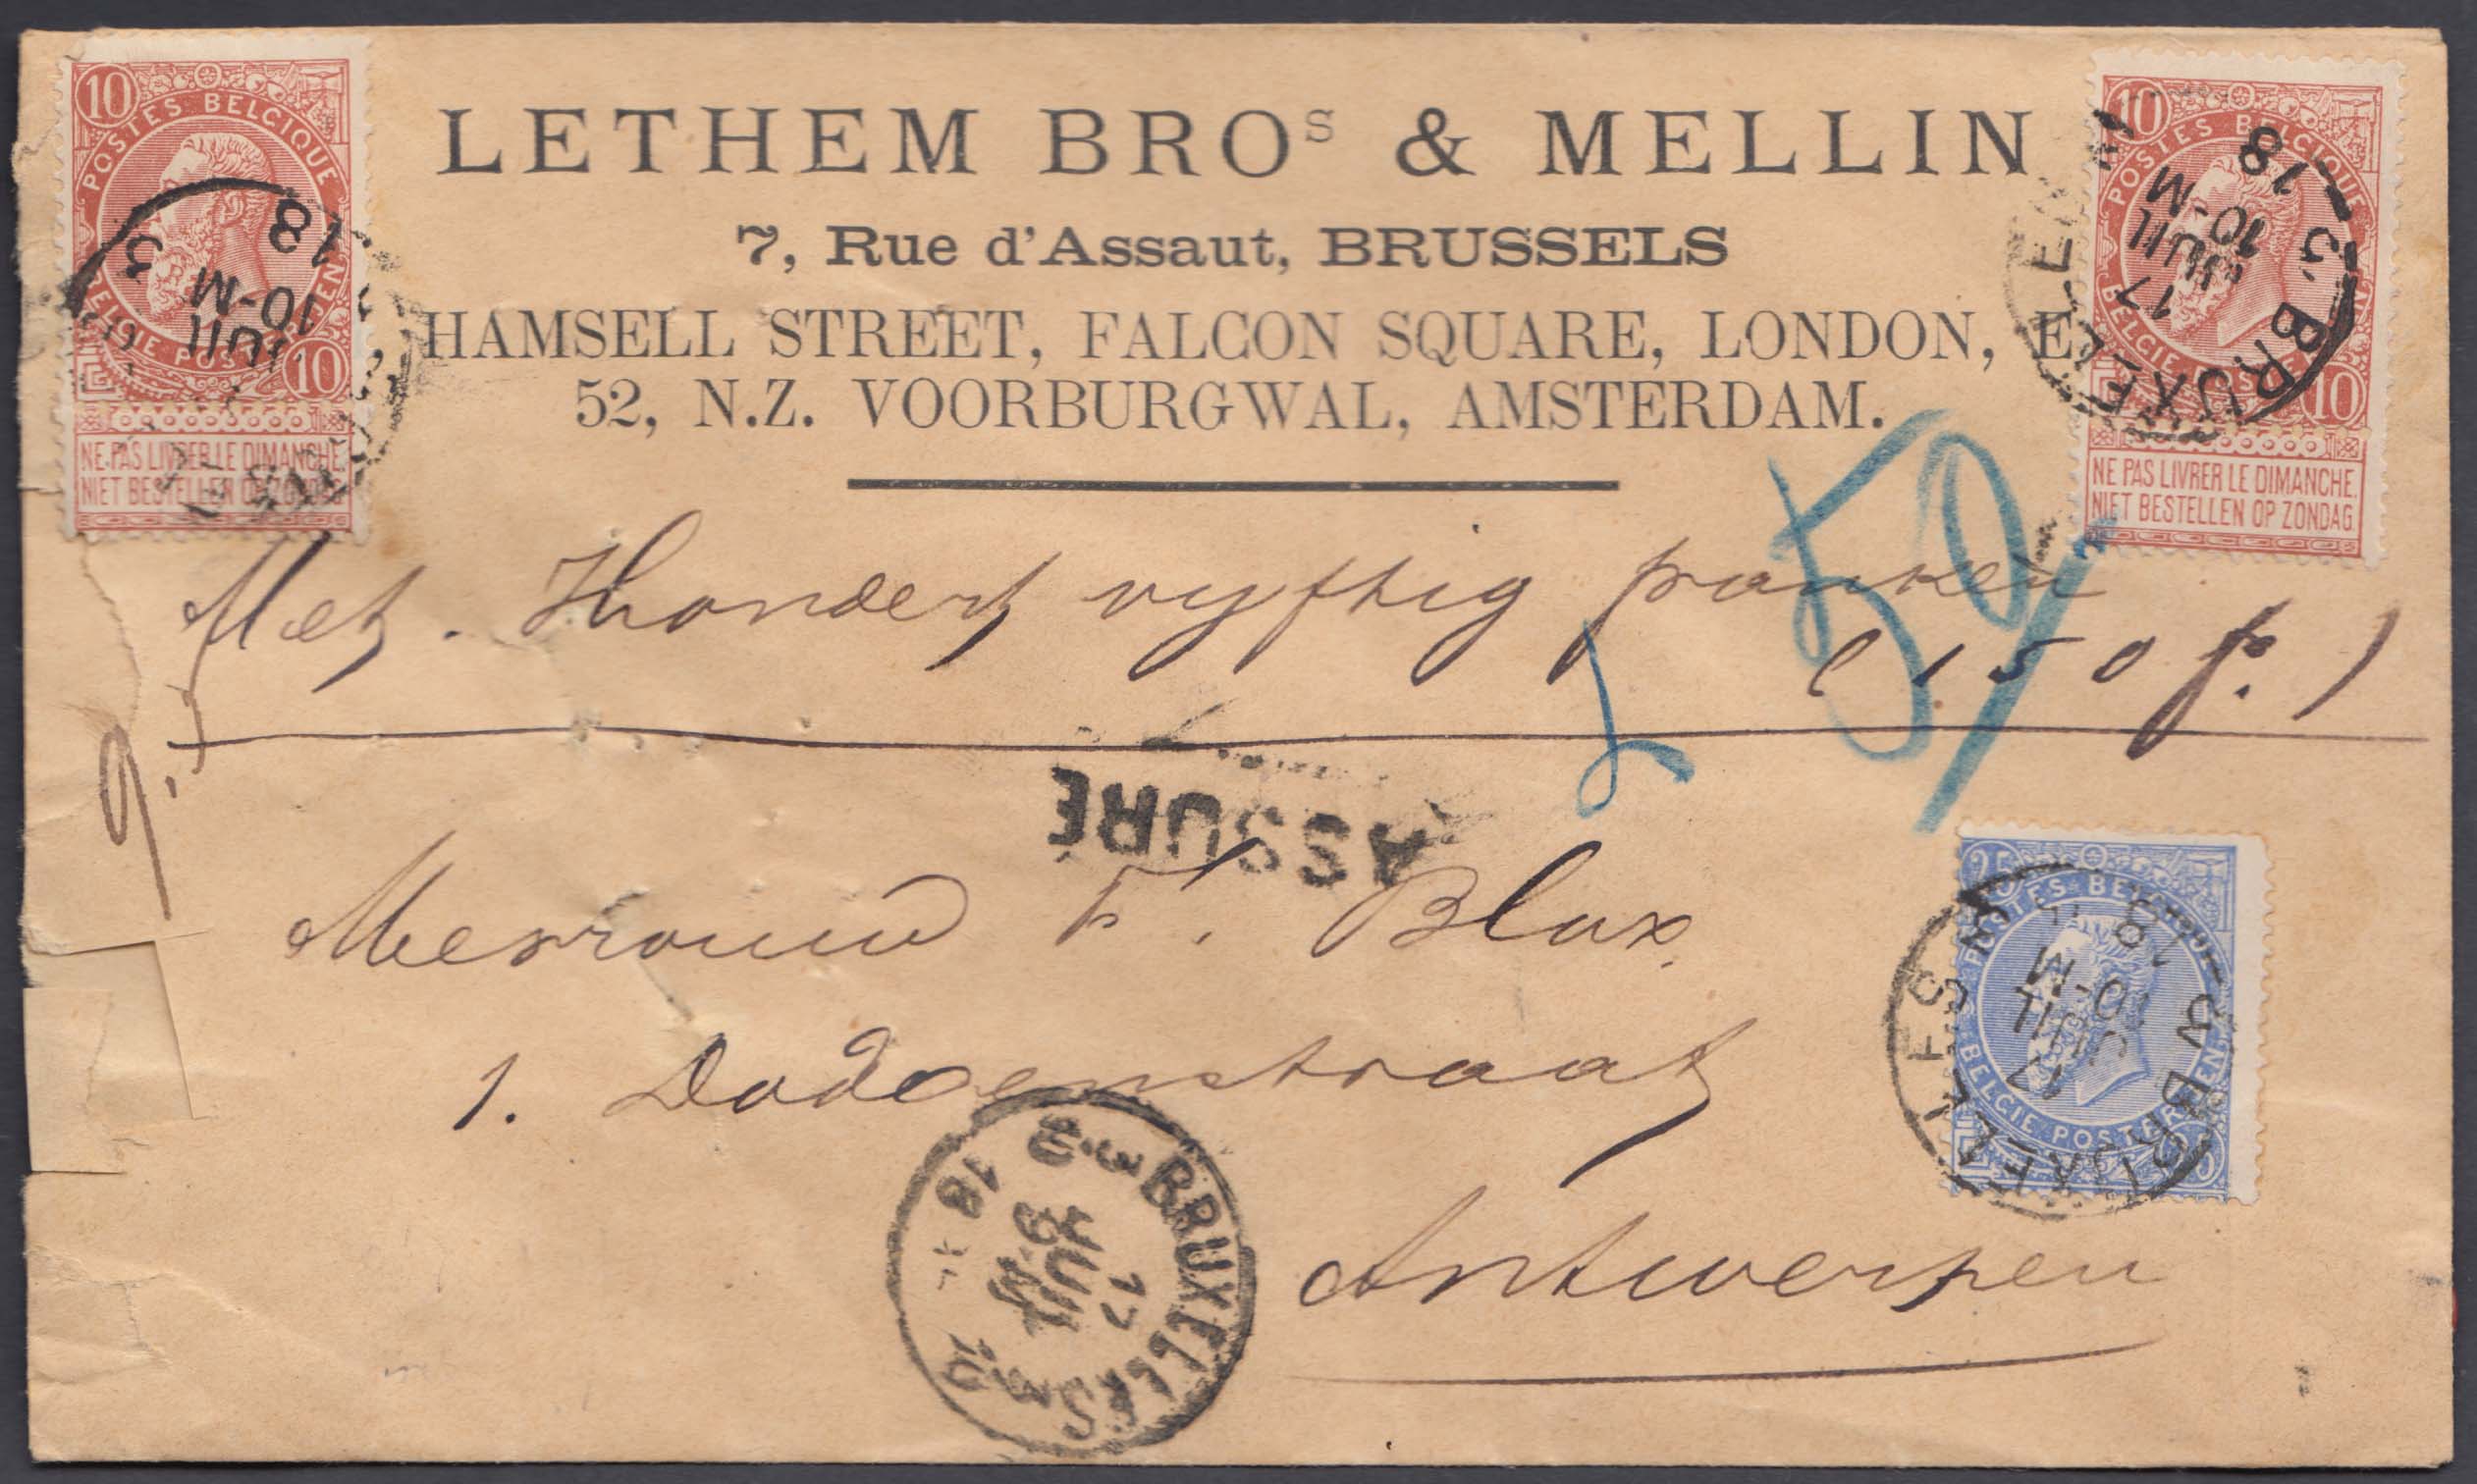 LETHEM BROS & MELLIN
7, Rue d'Assaut, BRUSSELS
HAMSELL STREET, FALCON SQUARE, LONDON, E
52, N.Z. VOORBURGWAL, AMSTERDAM.
10
POSTES BELGIQUE
BELGIE POSTERIJEN
10
NE PAS LIVRER LE DIMANCHE.
NIET BESTELLEN OP ZONDAG.
3
18
10-M
JUIL
10
POSTES BELGIQUE
BELGIE POSTERIJEN
10
NE PAS LIVRER LE DIMANCHE.
NIET BESTELLEN OP ZONDAG.
3 BRUXELLES
17
JUIL
10-M
18
Met. Hondert vyftig franken
50
(150 fr.)
ASSURÉ
Mevrouw F. Blux.
1. Dodoenstraat
Antwerpen
25
POSTES BELGIQUE
BELGIE POSTERIJEN
3 BRUXELLES
17
JUIL
10-M
18
3 BRUXELLES 3
17
JUIL
9-M
18